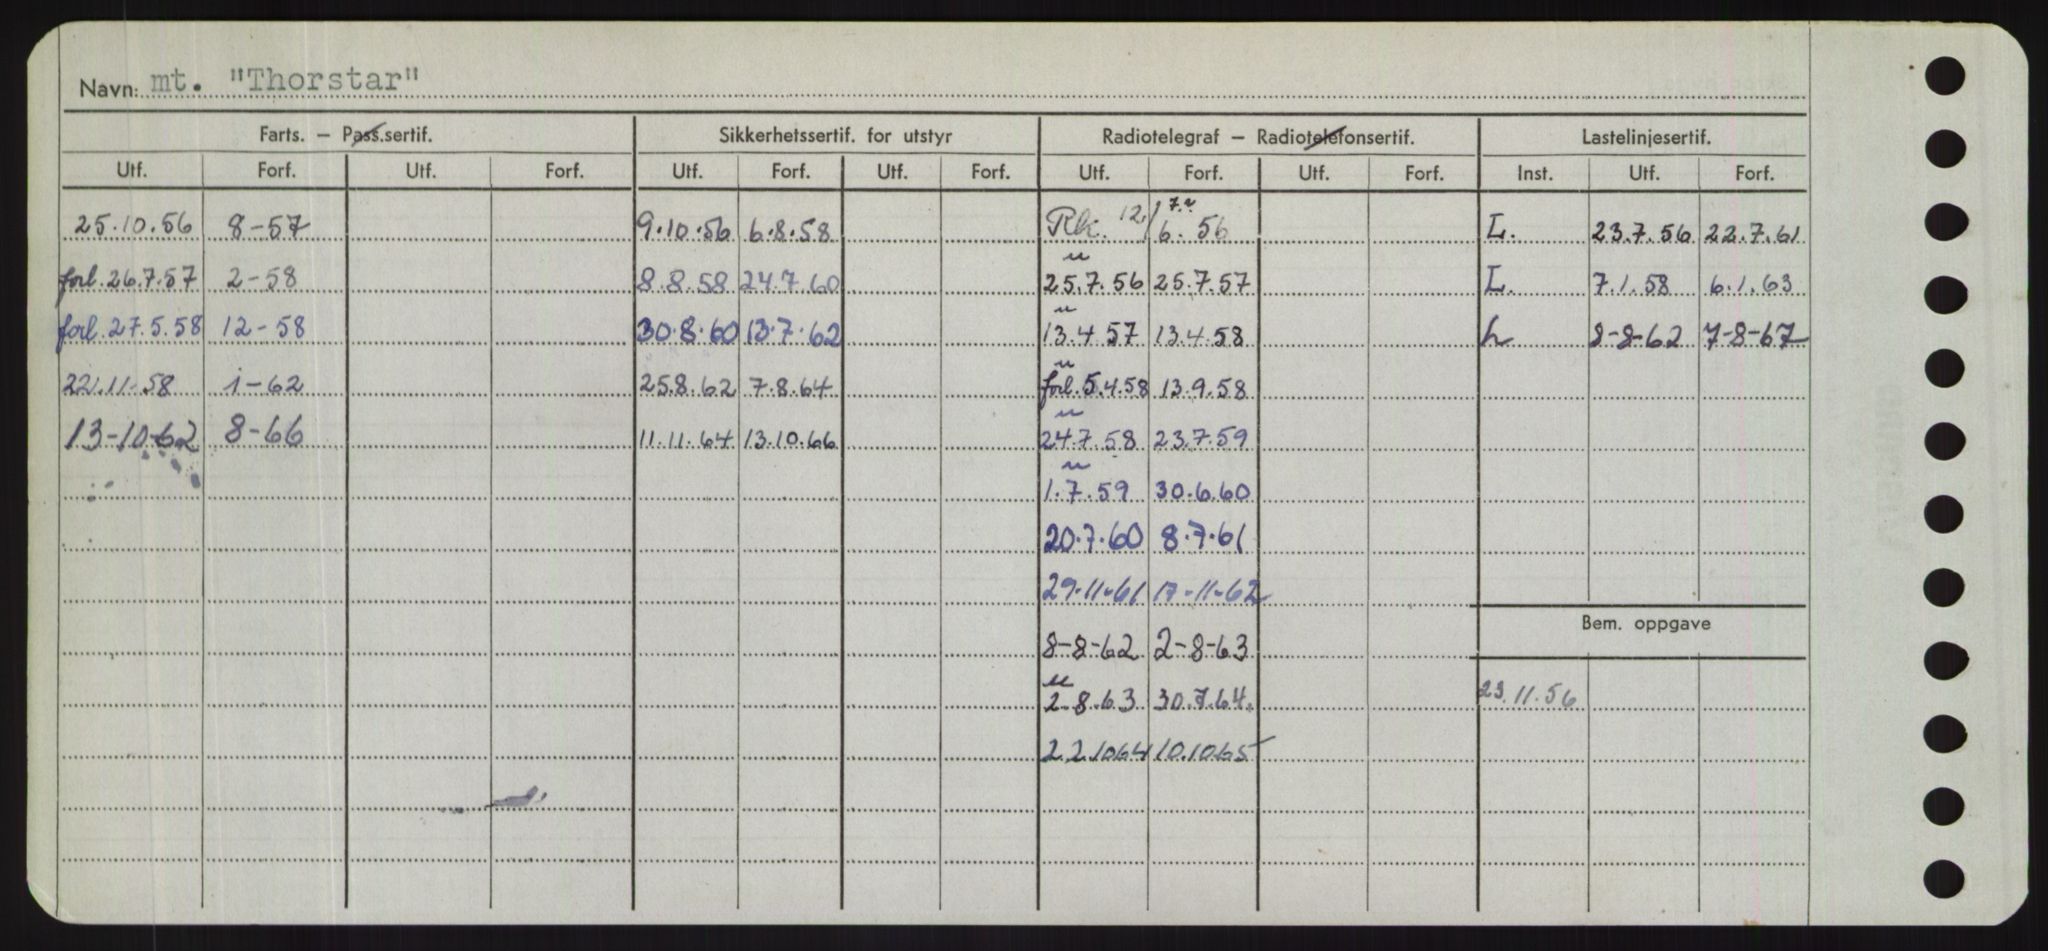 Navn: mt. "Thorstar"
Farts. – Pass.sertif. Sikkerhetssertif. for utstyr Radiotelegraf – Radiotelefonsertif. Lastelinjesertif.
Utf. Forf. Utf. Forf. Utf. Forf. Utf. Forf. Utf. Forf. Utf. Forf. Inst. Utf. Forf.
25.10.56 8-57 9.10.56 6.8.58 Rk. 12./6. 56 L. 23.7.56 22.7.61
forl. 26.7.57 2-58 8.8.58 24.7.60 25.7.56 25.7.57 L. 7.1.58 6.1.63
forl. 27.5.58 12-58 30.8.60 13.7.62 13.4.57 13.4.58 L 8-8-62 7-8-67
22.11.58 1-62 25.8.62 7.8.64 forl. 5.4.58 13.9.58
13-10-62 8-66 11.11.64 13.10.66 24.7.58 23.7.59
1.7.59 30.6.60
20.7.60 8.7.61
29.11.61 17-11-62
Bem. oppgave
8-8-62 2-8-63
2.8.63 30.7.64. 23.11.56
22.10.64 10.10.65